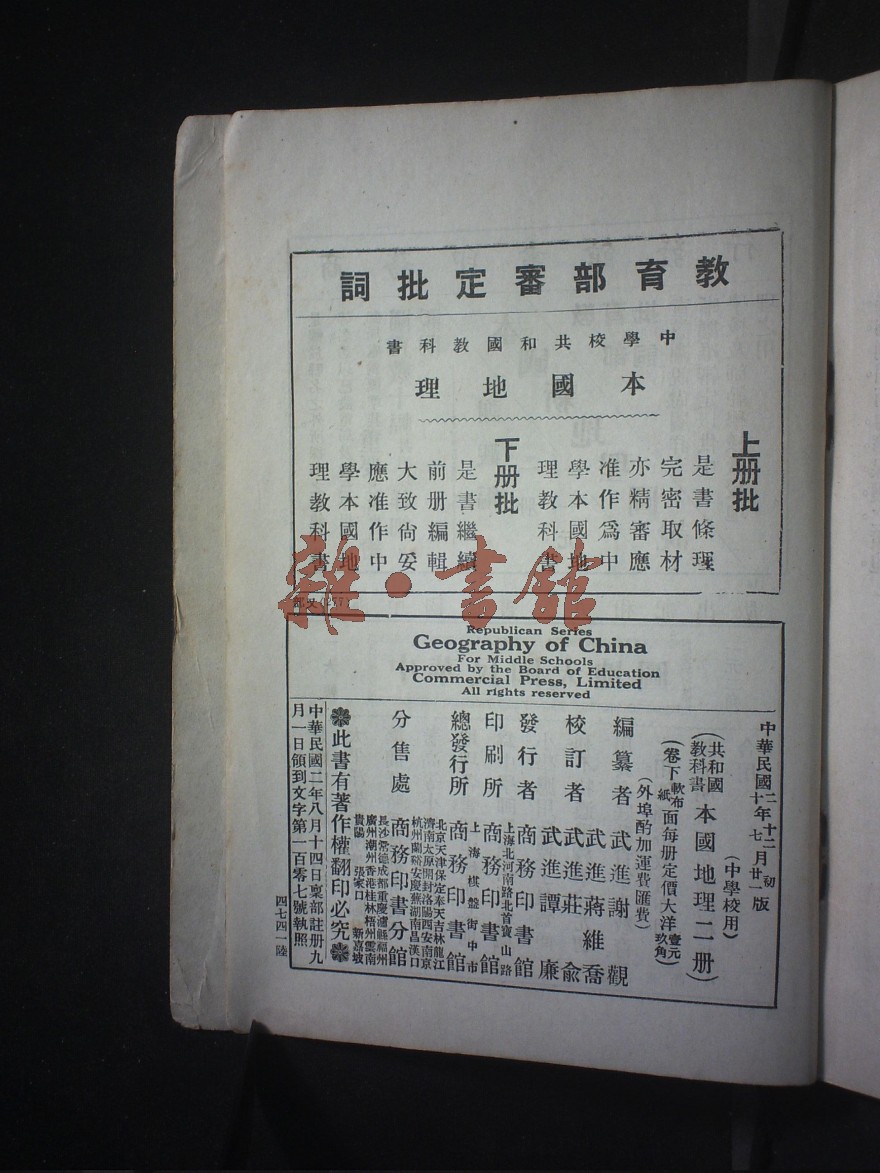 教育部審定批詞
中學校共和國教科書
本國地理
上册批
是書條理
完密取材
亦精審應
准作爲中
學本國地
理教科書
下册批
是書繼續
前册編輯
大致尙妥
應准作中
學本國地
理教科書
雜·書館
Republican Series
Geography of China
For Middle Schools
Approved by the Board of Education
Commercial Press, Limited
All rights reserved
中華民國二年十二月初版
中華民國十年七月廿一版
(中學校用)
(共和國教科書本國地理二册)
(卷下軟布紙面每册定價大洋壹元玖角)
(外埠酌加運費匯費)
編纂者 武進謝觀
校訂者 武進蔣維喬
武進莊俞
武進譚廉
發行者 商務印書館
印刷所 上海北河南路北首寶山路 商務印書館
總發行所 上海棋盤街中市 商務印書館
分售處 商務印書分館
北京天津保定奉天吉林龍江
濟南太原開封洛陽西安南京
杭州蘭谿安慶蕪湖南昌漢口
長沙常德成都重慶瀘縣福州
廣州潮州香港桂林梧州雲南
貴陽 張家口 新嘉坡
此書有著作權翻印必究
中華民國二年八月十四日稟部註册九
月一日領到文字第一百零七號執照
四七四一陸